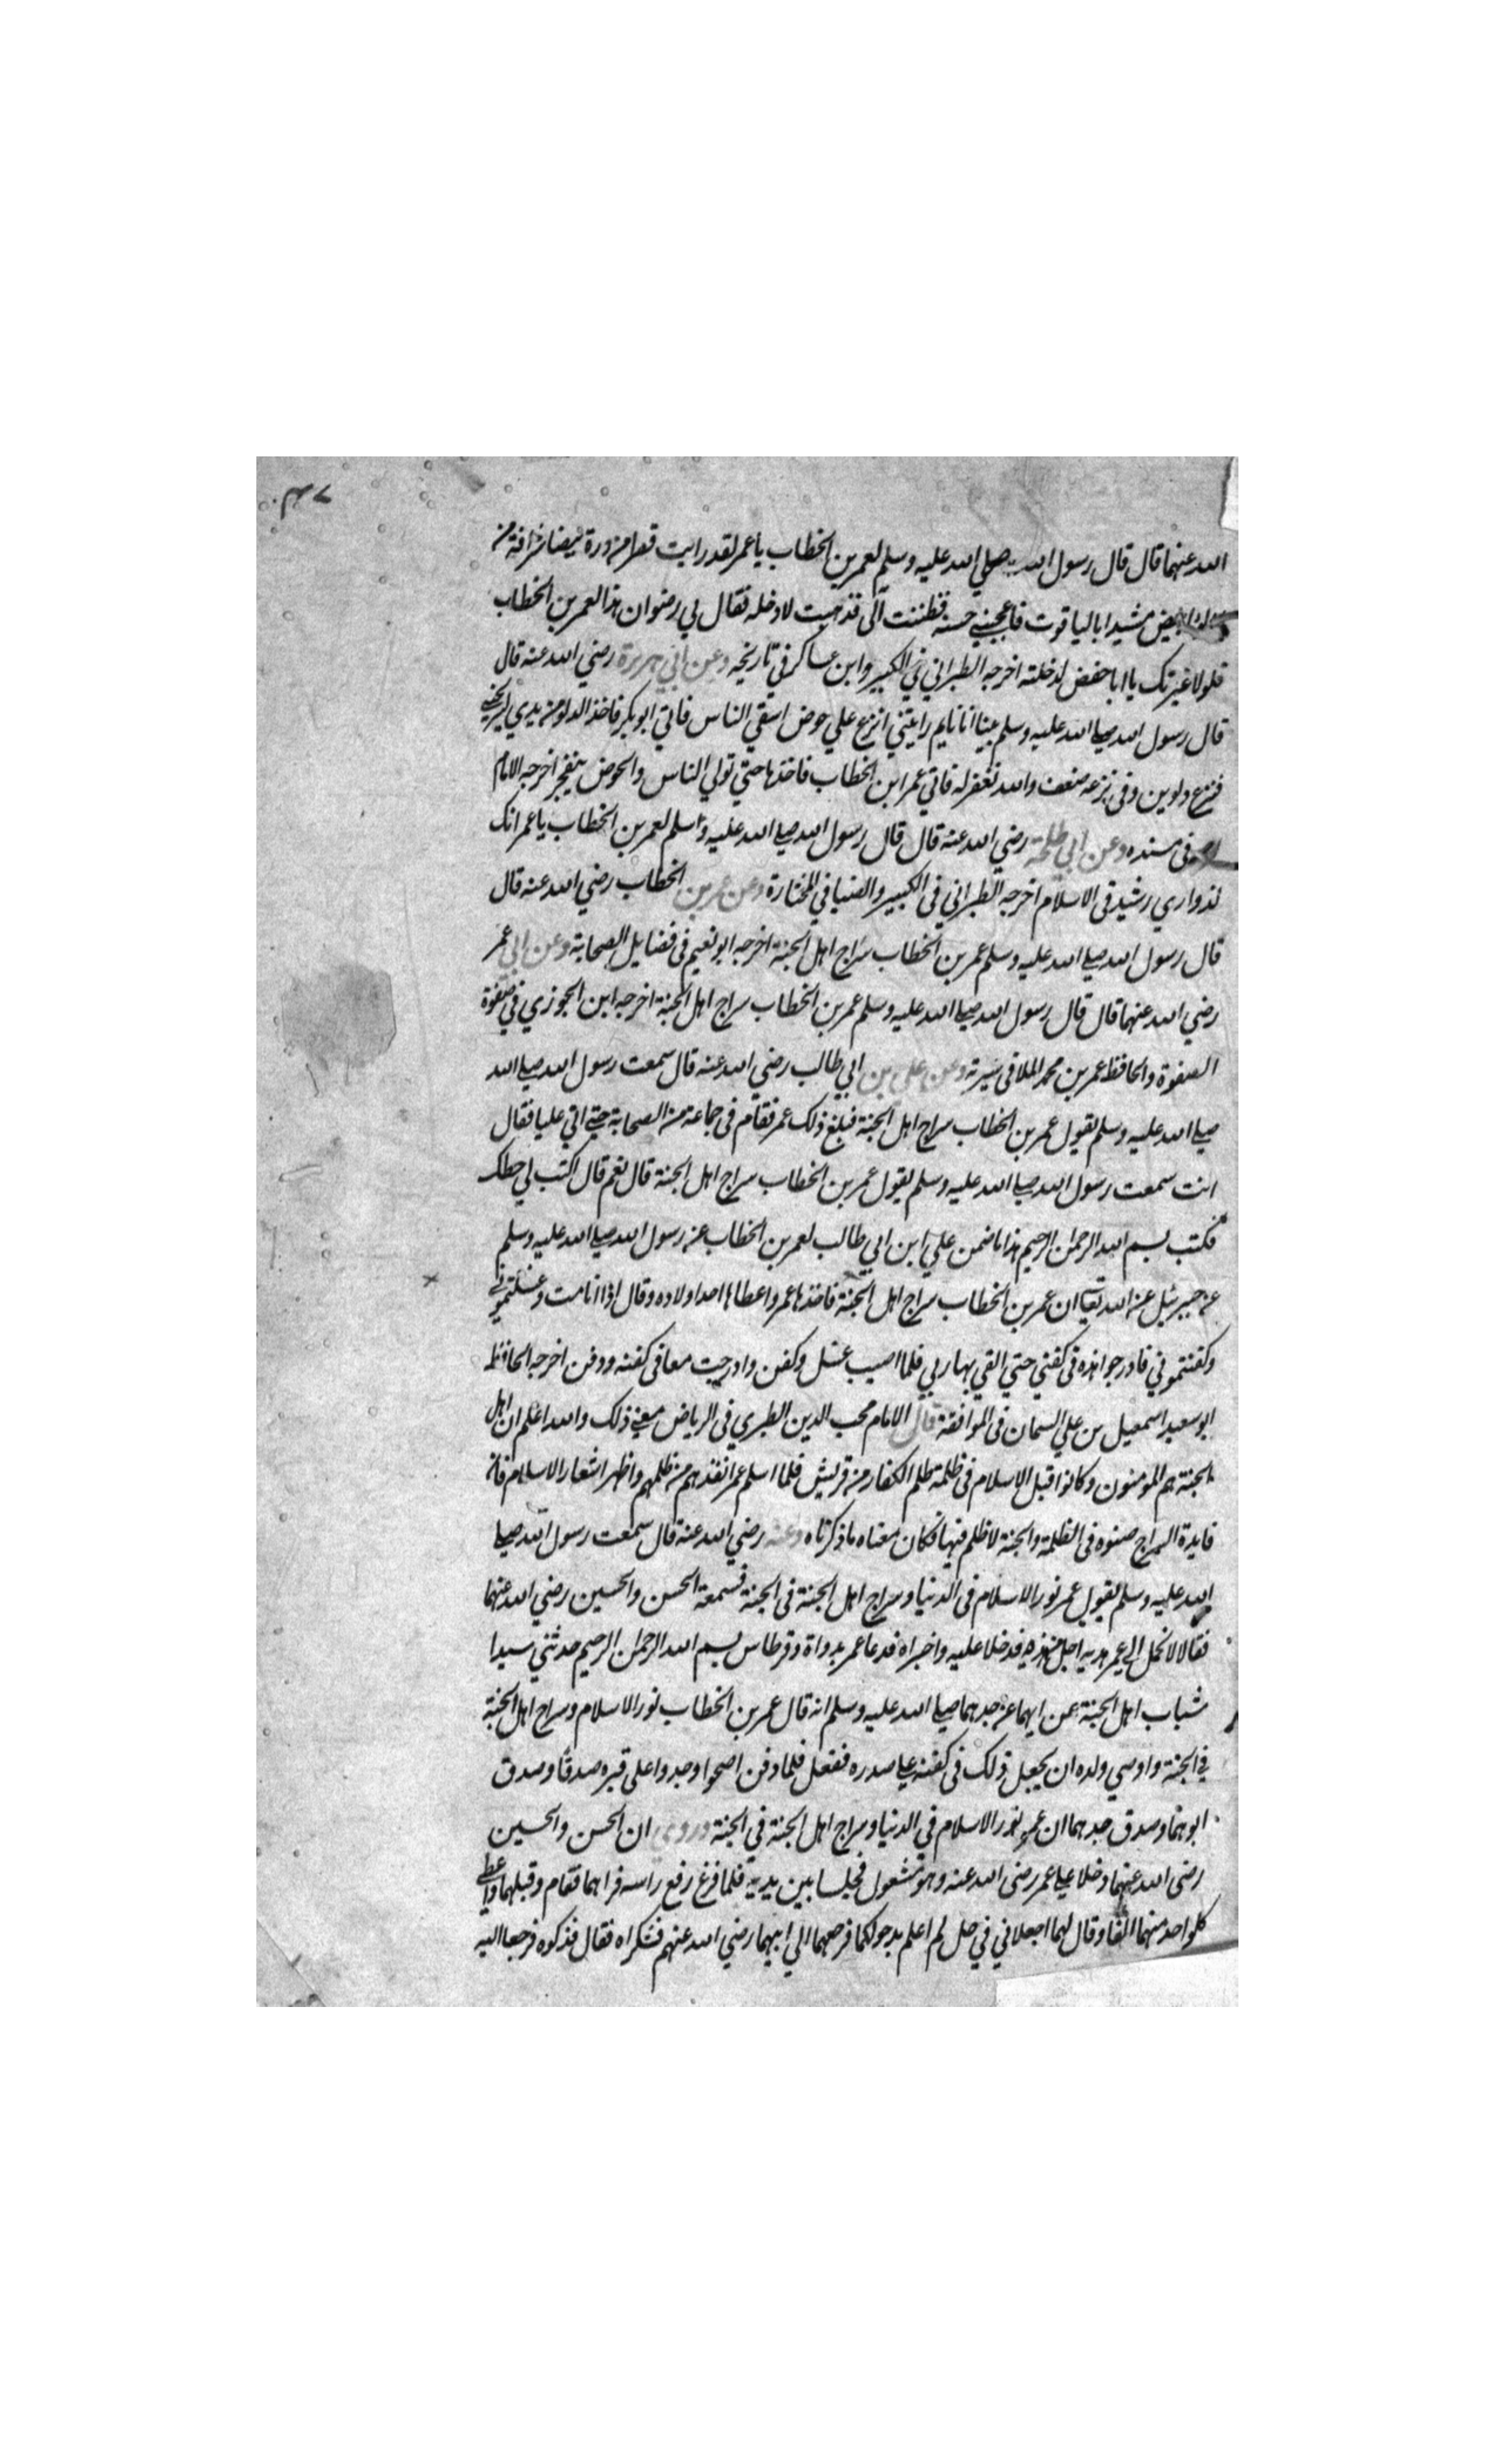 الله عنهما قال قال رسول الله صلي الله عليه وسلم لعمر بن الخطاب يا عمر لقد رايت قصرا من درة بيضا شرافة من
ابيض مشيدا بالياقوت فاعجبني حسنه فظننت الى قد هيت لادخله فقال لي رضوان هذا لعمر بن الخطاب
فلولا غيرتك يا ابا حفض لدخلته اخرجه الطبراني في الكبير وابن عساكر في تاريخه وعن ابي هريرة رضي الله عنه قال
قال رسول الله صلى الله عليه وسلم بينا انا نايم رايتني انزع علي حوض اسقي الناس فاتي ابو بكر فاخذ الدلو من يدي ليريحني
فنزع دلوين وفى نزعه ضعف والله تغفر له فاتي عمر ابن الخطاب فاخذها حتي تولي الناس والحوض يتفجر اخرجه الامام
فى مسنده وعن ابي طلحة رضي الله عنه قال قال رسول الله صلى الله عليه وسلم لعمر بن الخطاب يا عمر انك
لذو اري رشيد فى الاسلام اخرجه الطبراني فى الكبير والضيا في المختارة وعن عمر بن الخطاب رضي الله عنه قال
قال رسول الله صلى الله عليه وسلم عمر بن الخطاب سراج اهل الجنة اخرجه ابو نعيم فى فضايل الصحابة وعن ابي عمر
رضي الله عنهما قال قال رسول الله صلى الله عليه وسلم عمر بن الخطاب سراج اهل الجنة اخرجه ابن الجوزي في صفوة
الصفوة والحافظ عمر بن محمد الملا فى سيرته وعن علي بن ابي طالب رضي الله عنه قال سمعت رسول الله صلى الله
صلى الله عليه وسلم يقول عمر بن الخطاب سراج اهل الجنة فبلغ ذلك عمر فقام فى جماعة من الصحابة حتى اتي عليا فقال
انت سمعت رسول الله صلى الله عليه وسلم يقول عمر بن الخطاب سراج اهل الجنة قال نعم قال اكتب لي خطك
فكتب بسم الله الرحمن الرحيم هذا ما ضمن علي ابن ابي طالب لعمر بن الخطاب عن رسول الله صلى الله عليه وسلم
عن جبرئيل عن الله تعالى ان عمر بن الخطاب سراج اهل الجنة فاخذها عمر واعطاها احد اولاده وقال اذا انا مت وغسلتموني
وكفنتموني فادرجوا هذه فى كفني حتي القي بها ربي فلما اصيب غسل وكفن وادرجت معا فى كفنه ودفن اخرجه الحافظ
ابو سعيد اسمعيل بن علي السمان فى الموافقة قال الامام محب الدين الطبري فى الرياض معني ذلك والله اعلم ان اهل
الجنة هم المومنون وكانوا قبل الاسلام فى ظلمة ظلم الكفار من قريش فلما اسلم عمر انقذهم من ظلمهم واظهر اشعار الاسلام فان
فايدة السراج ضوه فى الظلمة والجنة لا ظلم فيها فكان معناه ما ذكرناه وعنه رضي الله عنه قال سمعت رسول الله صلى
الله عليه وسلم يقول عمر نور الاسلام فى الدنيا وسراج اهل الجنة فى الجنة فسمعه الحسن والحسين رضي الله عنهما
فقالا لا نحل الي عمر هدية اجل من هذه فدخلا عليه واخبراه فدعا عمر بدواة وقرطاس بسم الله الرحمن الرحيم حدثني سيدا
شباب اهل الجنة عن ابيهما عن جدهما صلى الله عليه وسلم انه قال عمر بن الخطاب نور الاسلام وسراج اهل الجنة
في الجنة واوصي ولده ان يجعل ذلك فى كفنه على صدره ففعل فلما دفن اصحوا وجدوا على قبره صدقا وصدق
ابوهما وصدق جدهما ان عمر نور الاسلام في الدنيا وسراج اهل الجنة في الجنة وروي ان الحسن والحسين
رضى الله عنهما دخلا على عمر رضى الله عنه وهو مشعول فجلسا بين يديه فلما فرغ رفع راسه فراهما فقام وقبلهما واعطى
كلواحد منهما الفا وقال لهما اجعلاني في حل لم اعلم بدخولكما فرجعا الي ابيهما رضي الله عنهم فشكراه فقال فذكروه فرجعا اليه